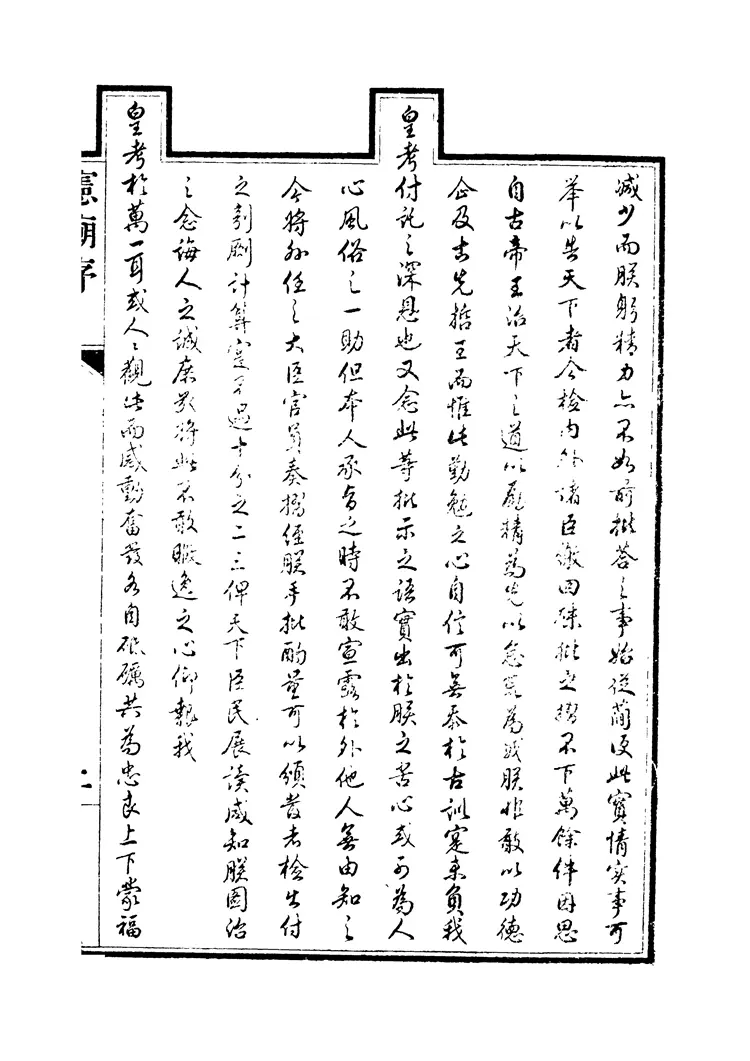 減少而朕躬精力亦不如前批荅之事始從簡便此實情实事可
举以告天下者今检内外諸臣繳回硃批之摺不下萬餘件因思
自古帝王治天下之道以勵精為先以怠荒為戒朕非敢以功德
企及古先哲王而惟此勤勉之心自信可無忝於古訓寔未負我
皇考付託之深恩也又念此等批示之語實出於朕之苦心或可為人
心風俗之一助但本人承旨之時不敢宣露於外他人無由知之
今將外任之大臣官員奏摺經朕手批酌量可以頒發者检出付
之剞劂計算寔不過十分之二三俾天下臣民展讀咸知朕圖治
之念誨人之誠庶幾將此不敢暇逸之心仰報我
皇考於萬一耳或人人觀此而感動奮發各自砥礪共為忠良上下蒙福
憲廟序
二